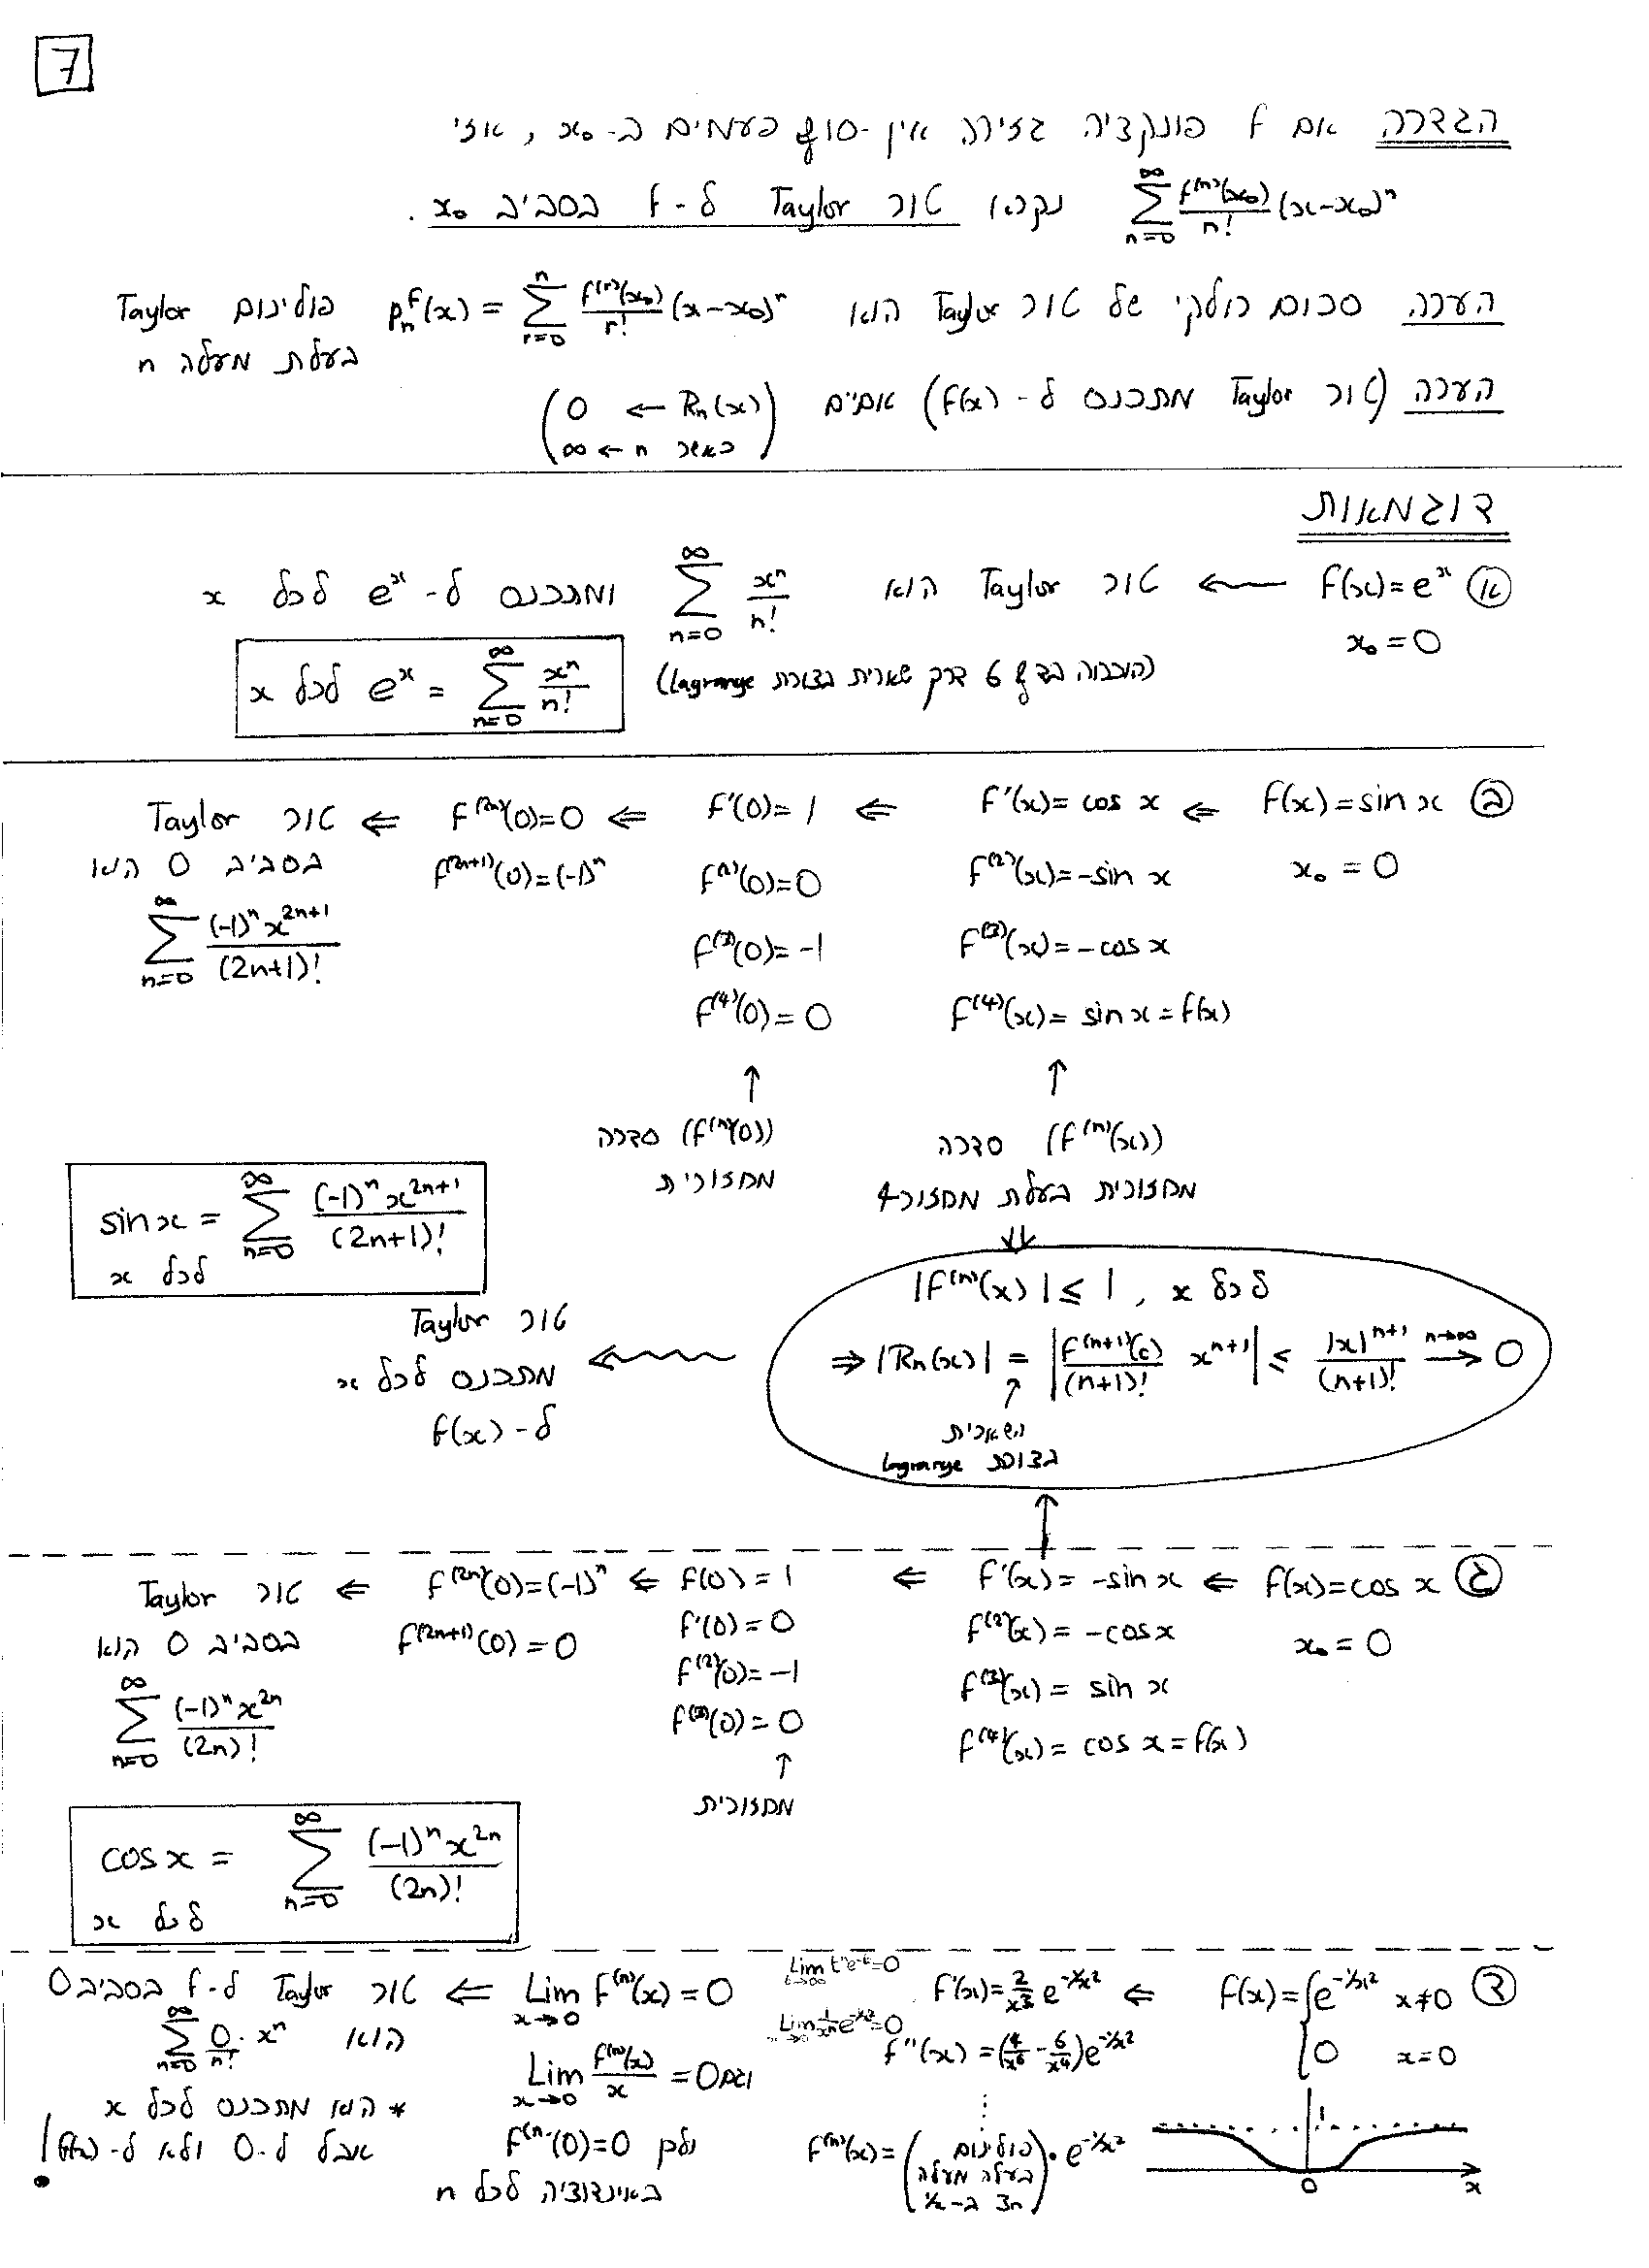 7
הגדרה אם f פונקציה גזירה אין-סוף פעמים ב-x₀, אזי
\sum_{n=0}^{∞} \frac{f^{(n)}(x₀)}{n!}(x-x₀)^n נקרא טור Taylor ל-f בסביב x₀.
הערה סכום חלקי של טור Taylor הוא p_n^f(x) = \sum_{r=0}^{n} \frac{f^{(r)}(x₀)}{r!}(x-x₀)^r פולינום Taylor
בעלת מעלה n
הערה (טור Taylor מתכנס ל-f(x)) אם"ם (0 ← Rn(x)
כאשר n → ∞)
דוגמאות
א f(x)=e^x ← טור Taylor הוא \sum_{n=0}^{∞} \frac{x^n}{n!} ומתכנס ל-e^x לכל x
x₀=0
(הוכחה בדף 6 דרך שארית בצורת Lagrange)
e^x = \sum_{n=0}^{∞} \frac{x^n}{n!} לכל x
ב f(x)=sin x ⇐ f'(x)=cos x ⇐ f'(0)=1 ⇐ f^{(2n)}(0)=0 ⇐ טור Taylor
x₀=0 f^{(2)}(x)=-sin x f^{(2)}(0)=0 f^{(2n+1)}(0)=(-1)^n בסביב 0 הוא
f^{(3)}(x)=-cos x f^{(3)}(0)=-1 \sum_{n=0}^{∞} \frac{(-1)^n x^{2n+1}}{(2n+1)!}
f^{(4)}(x)=sin x=f(x) f^{(4)}(0)=0
↑ ↑
(f^{(n)}(x)) סדרה (f^{(n)}(0)) סדרה
מחזורית בעלת מחזור 4 מחזורית
sin x = \sum_{n=0}^{∞} \frac{(-1)^n x^{2n+1}}{(2n+1)!}
לכל x
⇓
|f^{(n)}(x)| ≤ 1, לכל x
⇒ |Rn(x)| = |\frac{f^{(n+1)}(c)}{(n+1)!} x^{n+1}| ≤ \frac{|x|^{n+1}}{(n+1)!} \xrightarrow{n→∞} 0
↑
השארית
בצורת Lagrange
טור Taylor
מתכנס לכל x
ל-f(x)
ג f(x)=cos x ⇐ f'(x)=-sin x ⇐ f(0)=1 ⇐ f^{(2n)}(0)=(-1)^n ⇐ טור Taylor
x₀=0 f^{(2)}(x)=-cos x f'(0)=0 f^{(2n+1)}(0)=0 בסביב 0 הוא
f^{(3)}(x)=sin x f^{(2)}(0)=-1 \sum_{n=0}^{∞} \frac{(-1)^n x^{2n}}{(2n)!}
f^{(4)}(x)=cos x=f(x) f^{(3)}(0)=0
↑
מחזורית
cos x = \sum_{n=0}^{∞} \frac{(-1)^n x^{2n}}{(2n)!}
לכל x
ד f(x)={e^{-1/x²} x≠0 ⇐ f'(x)=\frac{2}{x³}e^{-1/x²} Lim_{t→∞} t^n e^{-t}=0 Lim_{x→0} f^{(n)}(x)=0 ⇐ טור Taylor ל-f בסביב 0
0 x=0 f''(x)=(\frac{4}{x⁶}-\frac{6}{x⁴})e^{-1/x²} Lim_{x→0} \frac{1}{x^n}e^{-1/x²}=0 וגם Lim_{x→0} \frac{f^{(n)}(x)}{x}=0 הוא \sum_{n=0}^{∞} \frac{0}{n!}·x^n
⋮
f^{(n)}(x)=(פולינום
בעלת מעלה
3n ב-1/x)·e^{-1/x²}
ולכן f^{(n)}(0)=0
באינדוקציה לכל n
* הוא מתכנס לכל x
אבל ל-0 ולא ל-f(x)!
1
0 x